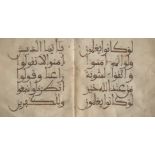 لو كانوا يعلمون
ولو انهم امنوا
واتقوا لمثوبة
من عند الله خير
لو كانوا يعلمون
يايها الذين
امنوا لا تقولوا
راعنا وقولوا
انظرنا واسمعوا
وللكفرين